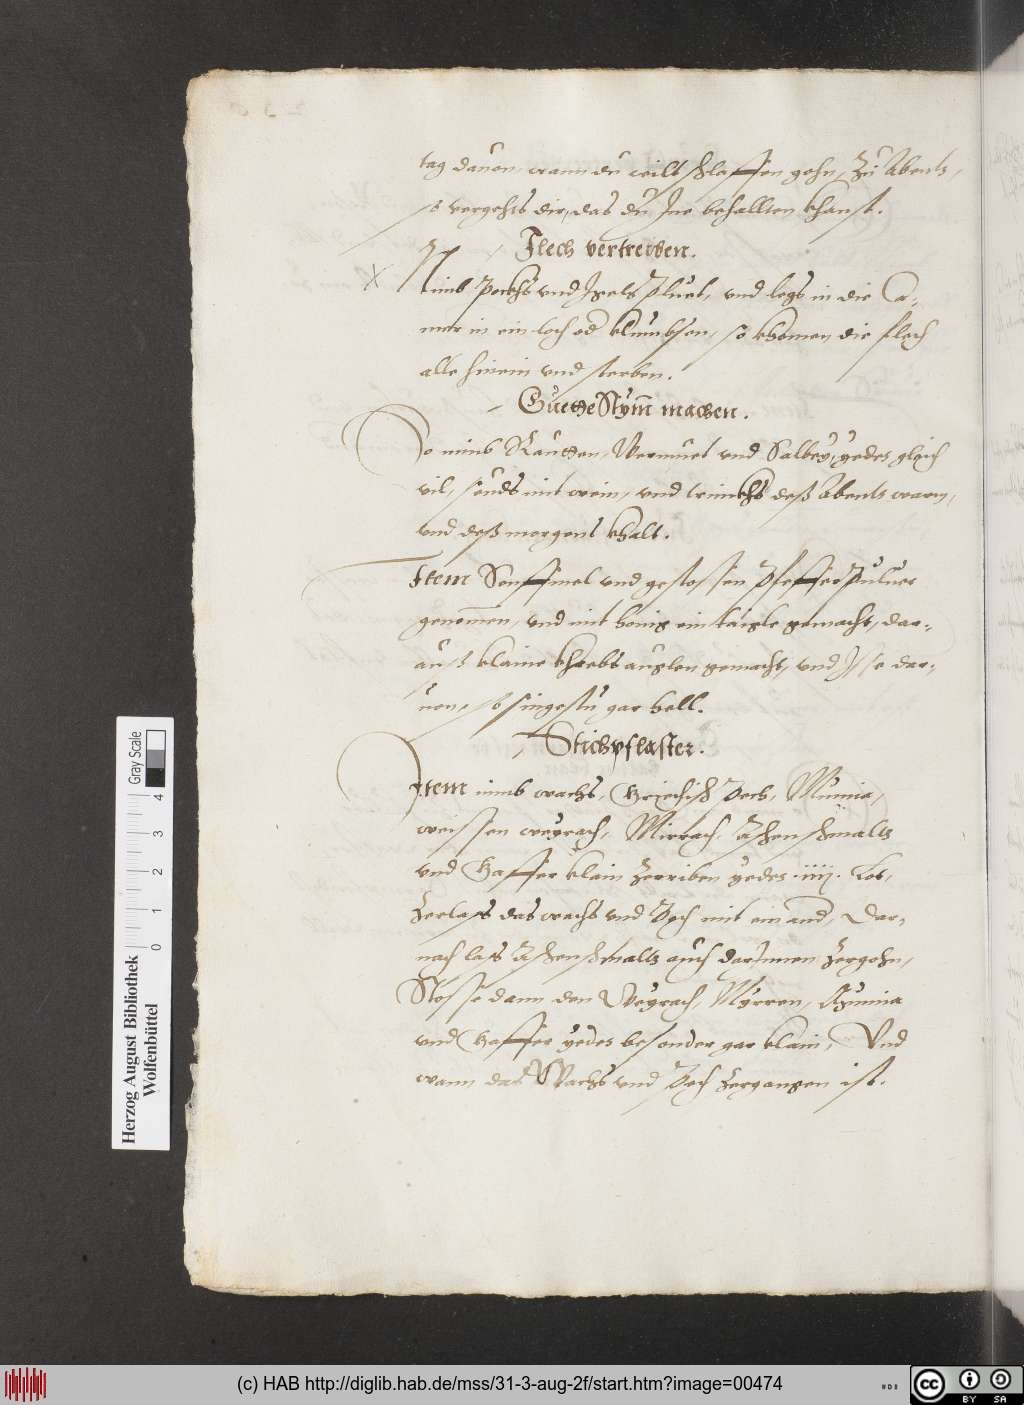 tag dauon, wann du wilt schlaffen gehn, zu Abents,
so vergehts dir, das du Ine behallten khanst.
Flech vertreiben.
X Nimb Pockhs und Igels Pluet, und legs in die Ca-
mer in ein loch od klumbsen, so khomen die flech
alle hinein und sterben.
Guette Stym̄ machen.
So nimb Rautten, Wermuet und Salbey, yedes gleich
vil, seuds mit wein, und trinckhs deß Abents warm,
und deß morgens khalt.
Item Senffmel und gestossen Pfeffer Puluer
genom̄en, und mit honig ein taigle gemacht, dar-
auß klaine khrebs auglen gemacht, und Isse dar-
uon, so singestu gar hell.
Stichpflaster.
Item nimb wachs, Griechisch Pech, Mumia,
weissen weyrach, Mirrach, Aschenschmaltz
und Gaffer klain zerriben yedes .iiij. Lot,
Zerlass das wachs und Pech mit ein and, Dar-
nach lass Aschenschmaltz auch darInnen zergehn,
Stosse dann den Weyrach, Myrren, Mumia
und Gaffer yedes besonder gar klain, Und
wann das Wachs und Pech zergangen ist.
Herzog August Bibliothek
Wolfenbüttel
Gray Scale
0 1 2 3 4
(c) HAB http://diglib.hab.de/mss/31-3-aug-2f/start.htm?image=00474
cc BY SA